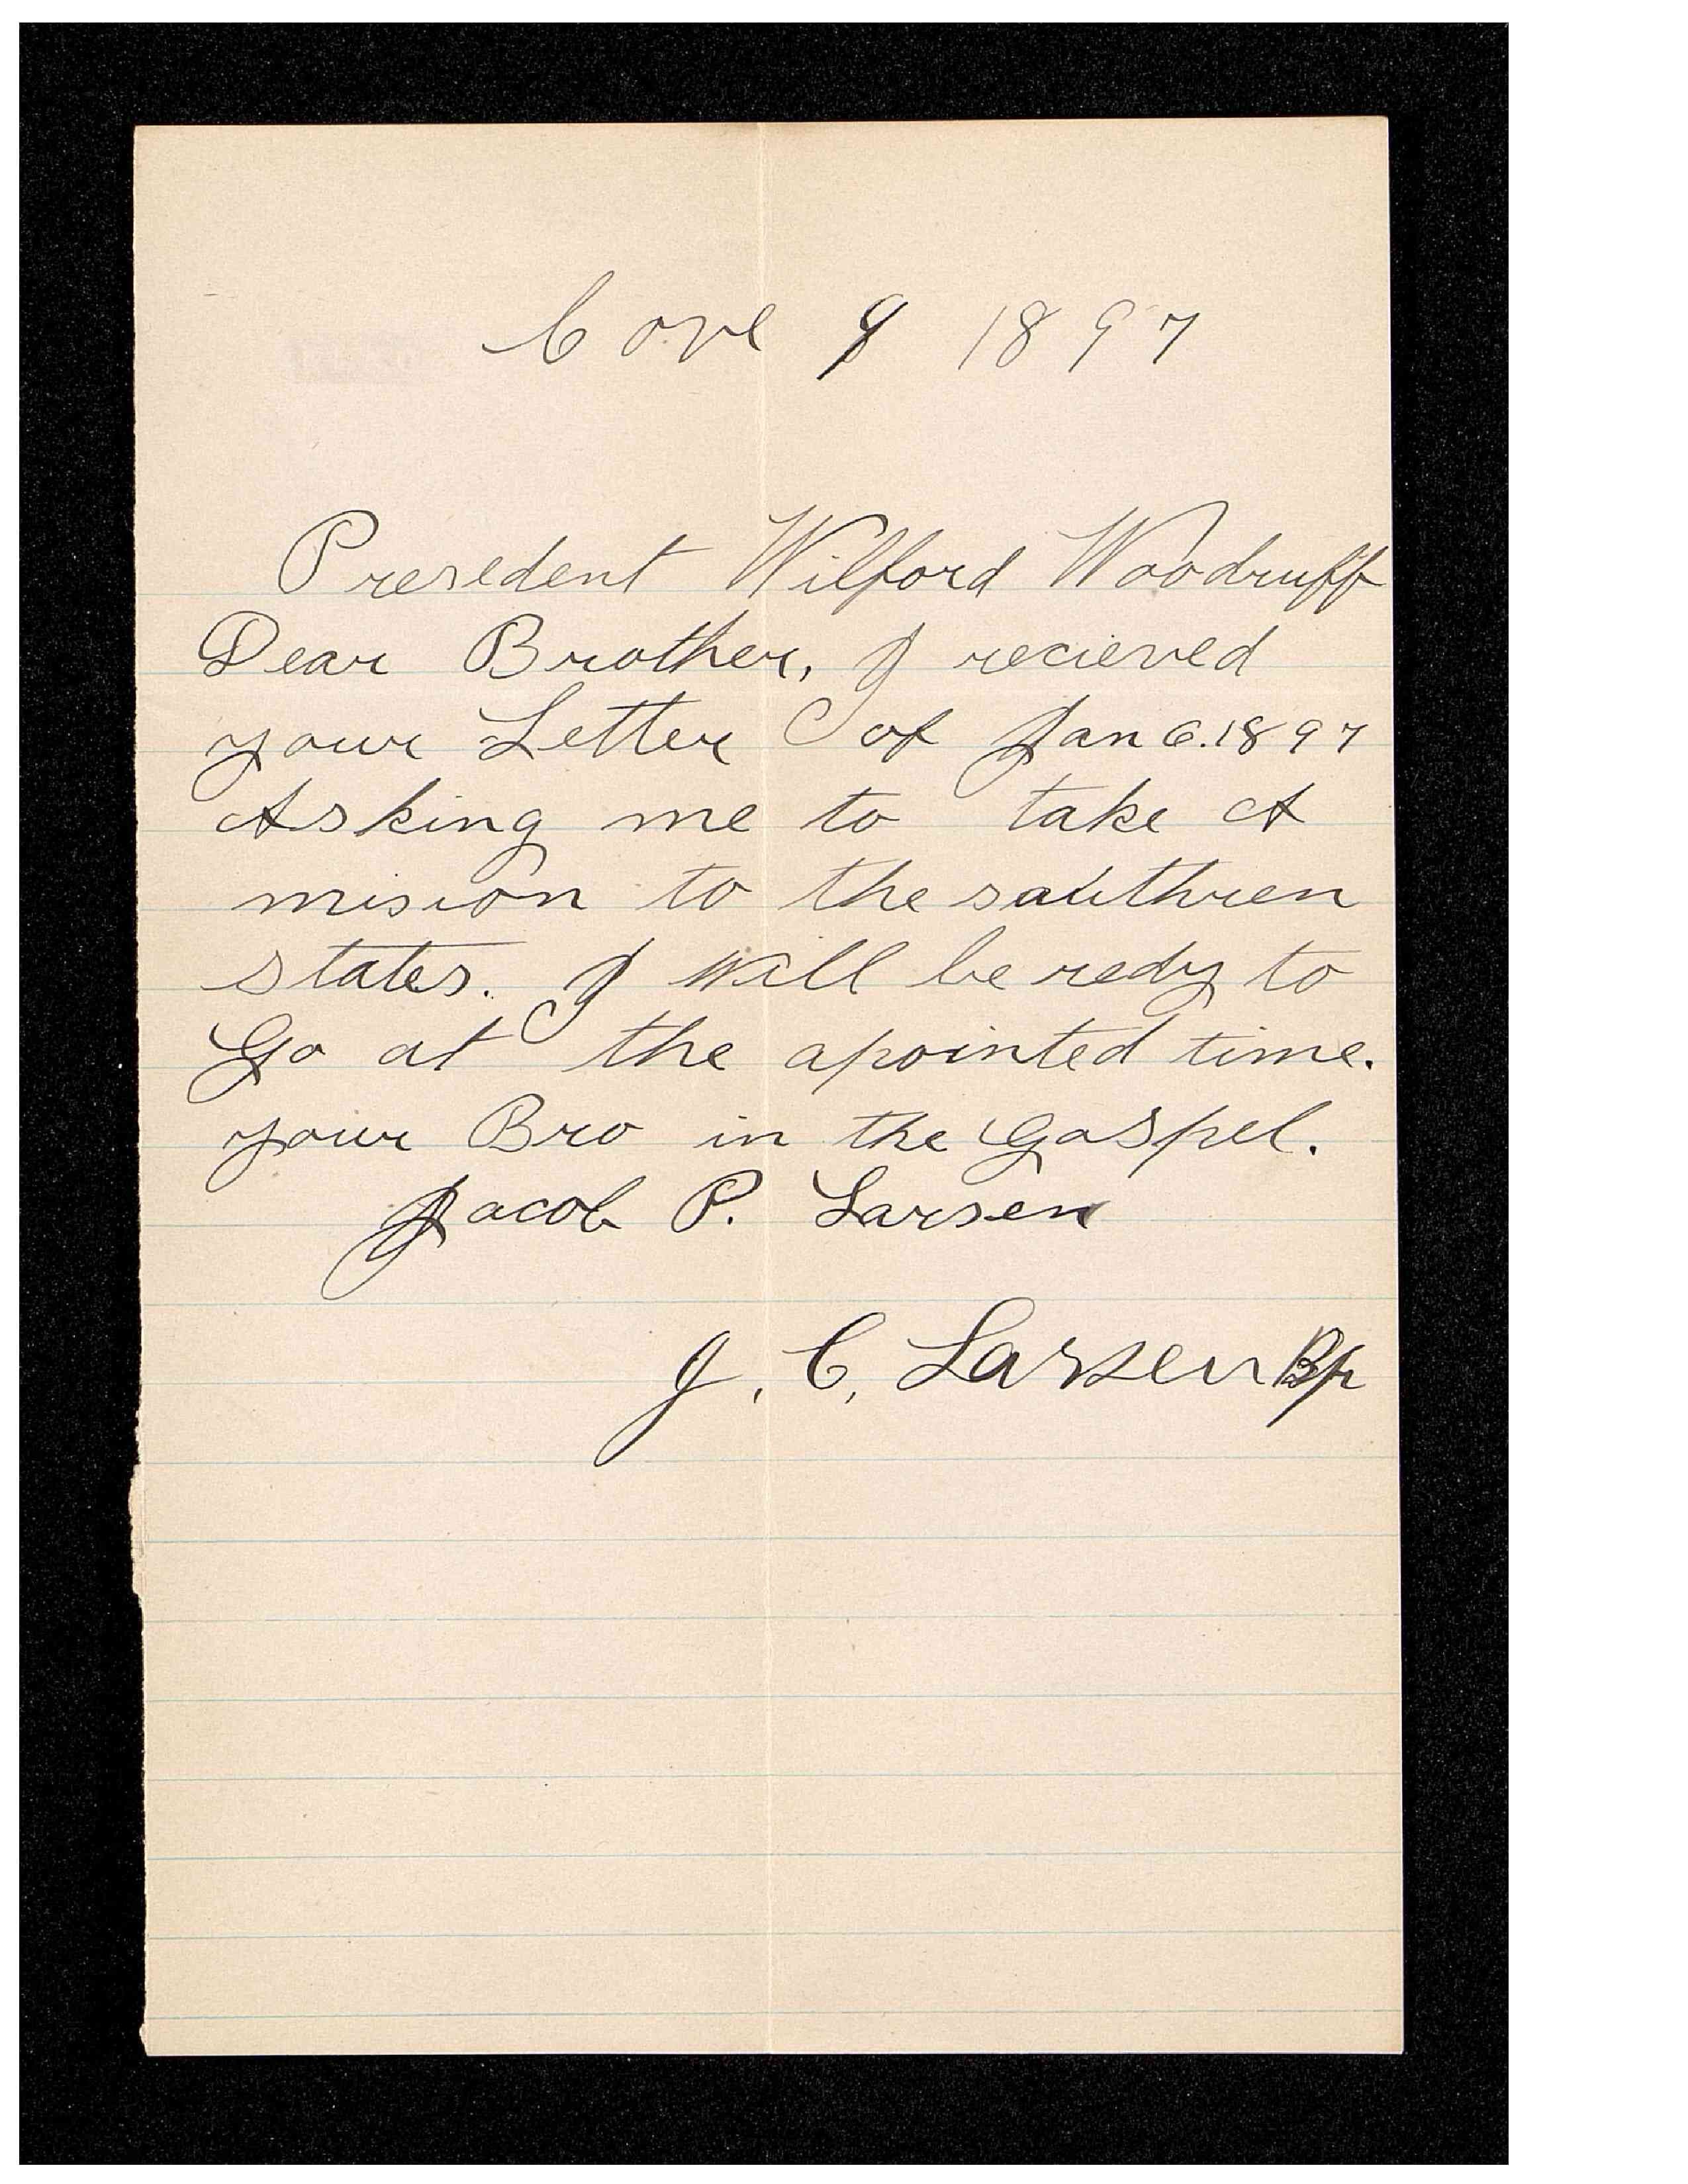 Cove 9 1897
Presedent Wilford Woodruff
Dear Brother, I recieved
your Letter of Jan 6. 1897
Asking me to take A
mision to the southren
states. I will be redy to
Go at the apointed time.
your Bro in the Gospel.
Jacob P. Larsen
J. C. Larsen Bp